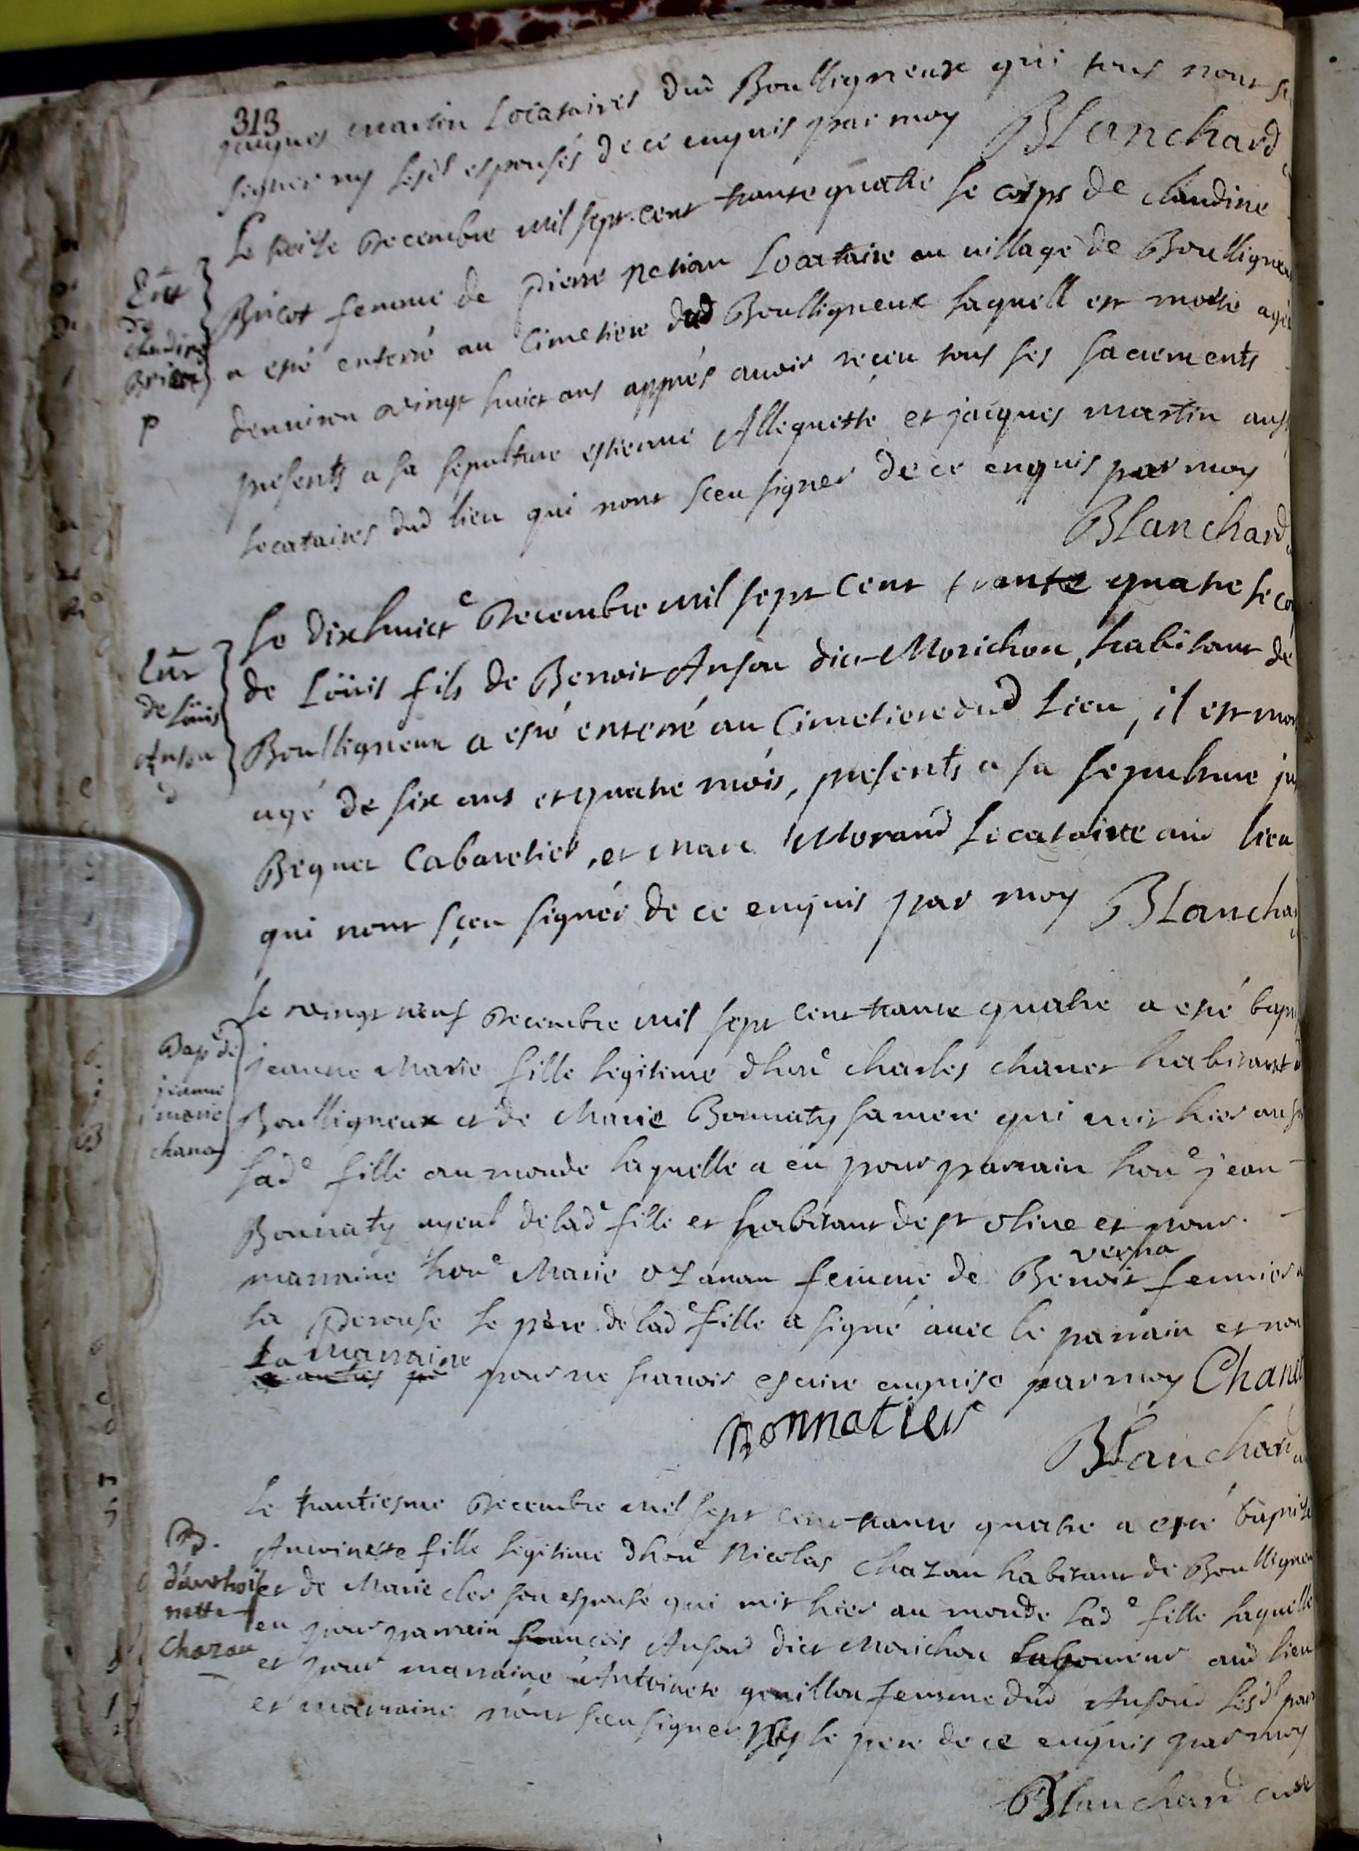 313
jacques martin Locataires dud Boulligneux qui tous nont sc
signer ny lesd espousés de ce enquis par moy Blanchard
Le seize Decembre mil sept cent trante quatre le corps de claudine
Bricot femme de pierre Locataire au village de Boulligneu
a esté enterré au Cimetiere dud Boulligneux laquell est morte agée
denuiron vingt huict ans apprés auoir reçeu tous ses sacrements
presents a sa sepulture estienne Allequette et jacques martin auss
locataires dud lieu qui nont sceu signer de ce enquis par moy
Blanchard
Ent
de
claudine
Bricot
p
Le dixhuicte Decembre mil sept cent trante quatre le co
de Loüis fils de Benoit Anson dict Morichon, habitant de
Boulligneux a esté enterré au Cimetiere dud Lieu, il est mor
agé de six ans et quatre mois, presents a sa sepulture
Beguet Cabaretier, et Marc Morand Locataire aud lieu
qui nont sçeu signér de ce enquis par moy Blanchar
Ent
de Loüis
Anson
Le vingt neuf Decembre mil sept cent trante quatre a esté bapt
jeanne Marie fille legitime dhone charles chanet habitant d
Boulligneux et de Marie Bonnaty sa mere qui mit hier
lade fille au monde laquelle a eu pour parrain hone jean
Bonnaty ayeul de lade fille et habitant de st oline et pour
marraine hone Marie ozanan femme de Benoit verna fermier a
la Perouse le pére de lade fille a signé auec le parrain et non
La marraine pour ne scauoir escrire enquise par moy Chanet
Bonnatier
Blanchard
Bape de
jeanne
marie
chanet
Le trantiesme Decembre mil sept cent trante quatre a esté baptisé
Antoinette fille legitime dhone Nicolas Chazau habitant de Boulligneu
et de Marie cler son espouse qui mit hier au monde lade fille laquelle
eu pour parrain francois Ansond dict Morichon laboureur aud lieu
et pour marraine Antoinete genillon femme dud Ansond lesd par
et marraine nont sceu signer ny le pere de ce enquis par moy
Blanchard curé
B.
d'anthoi
nette
Chazau